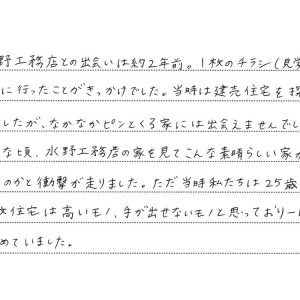 野工務店との出会いは約2年前。1枚のチラシ(見学
に行ったことがきっかけでした。当時は建売住宅を探
したが、なかなかピンとくる家には出会えませんでし
な頃、水野工務店の家を見てこんな素晴らしい家か
のかと衝撃が走りました。ただ当時私たちは25歳
住宅は高いモノ、手が出せないモノと思っており一
めていました。